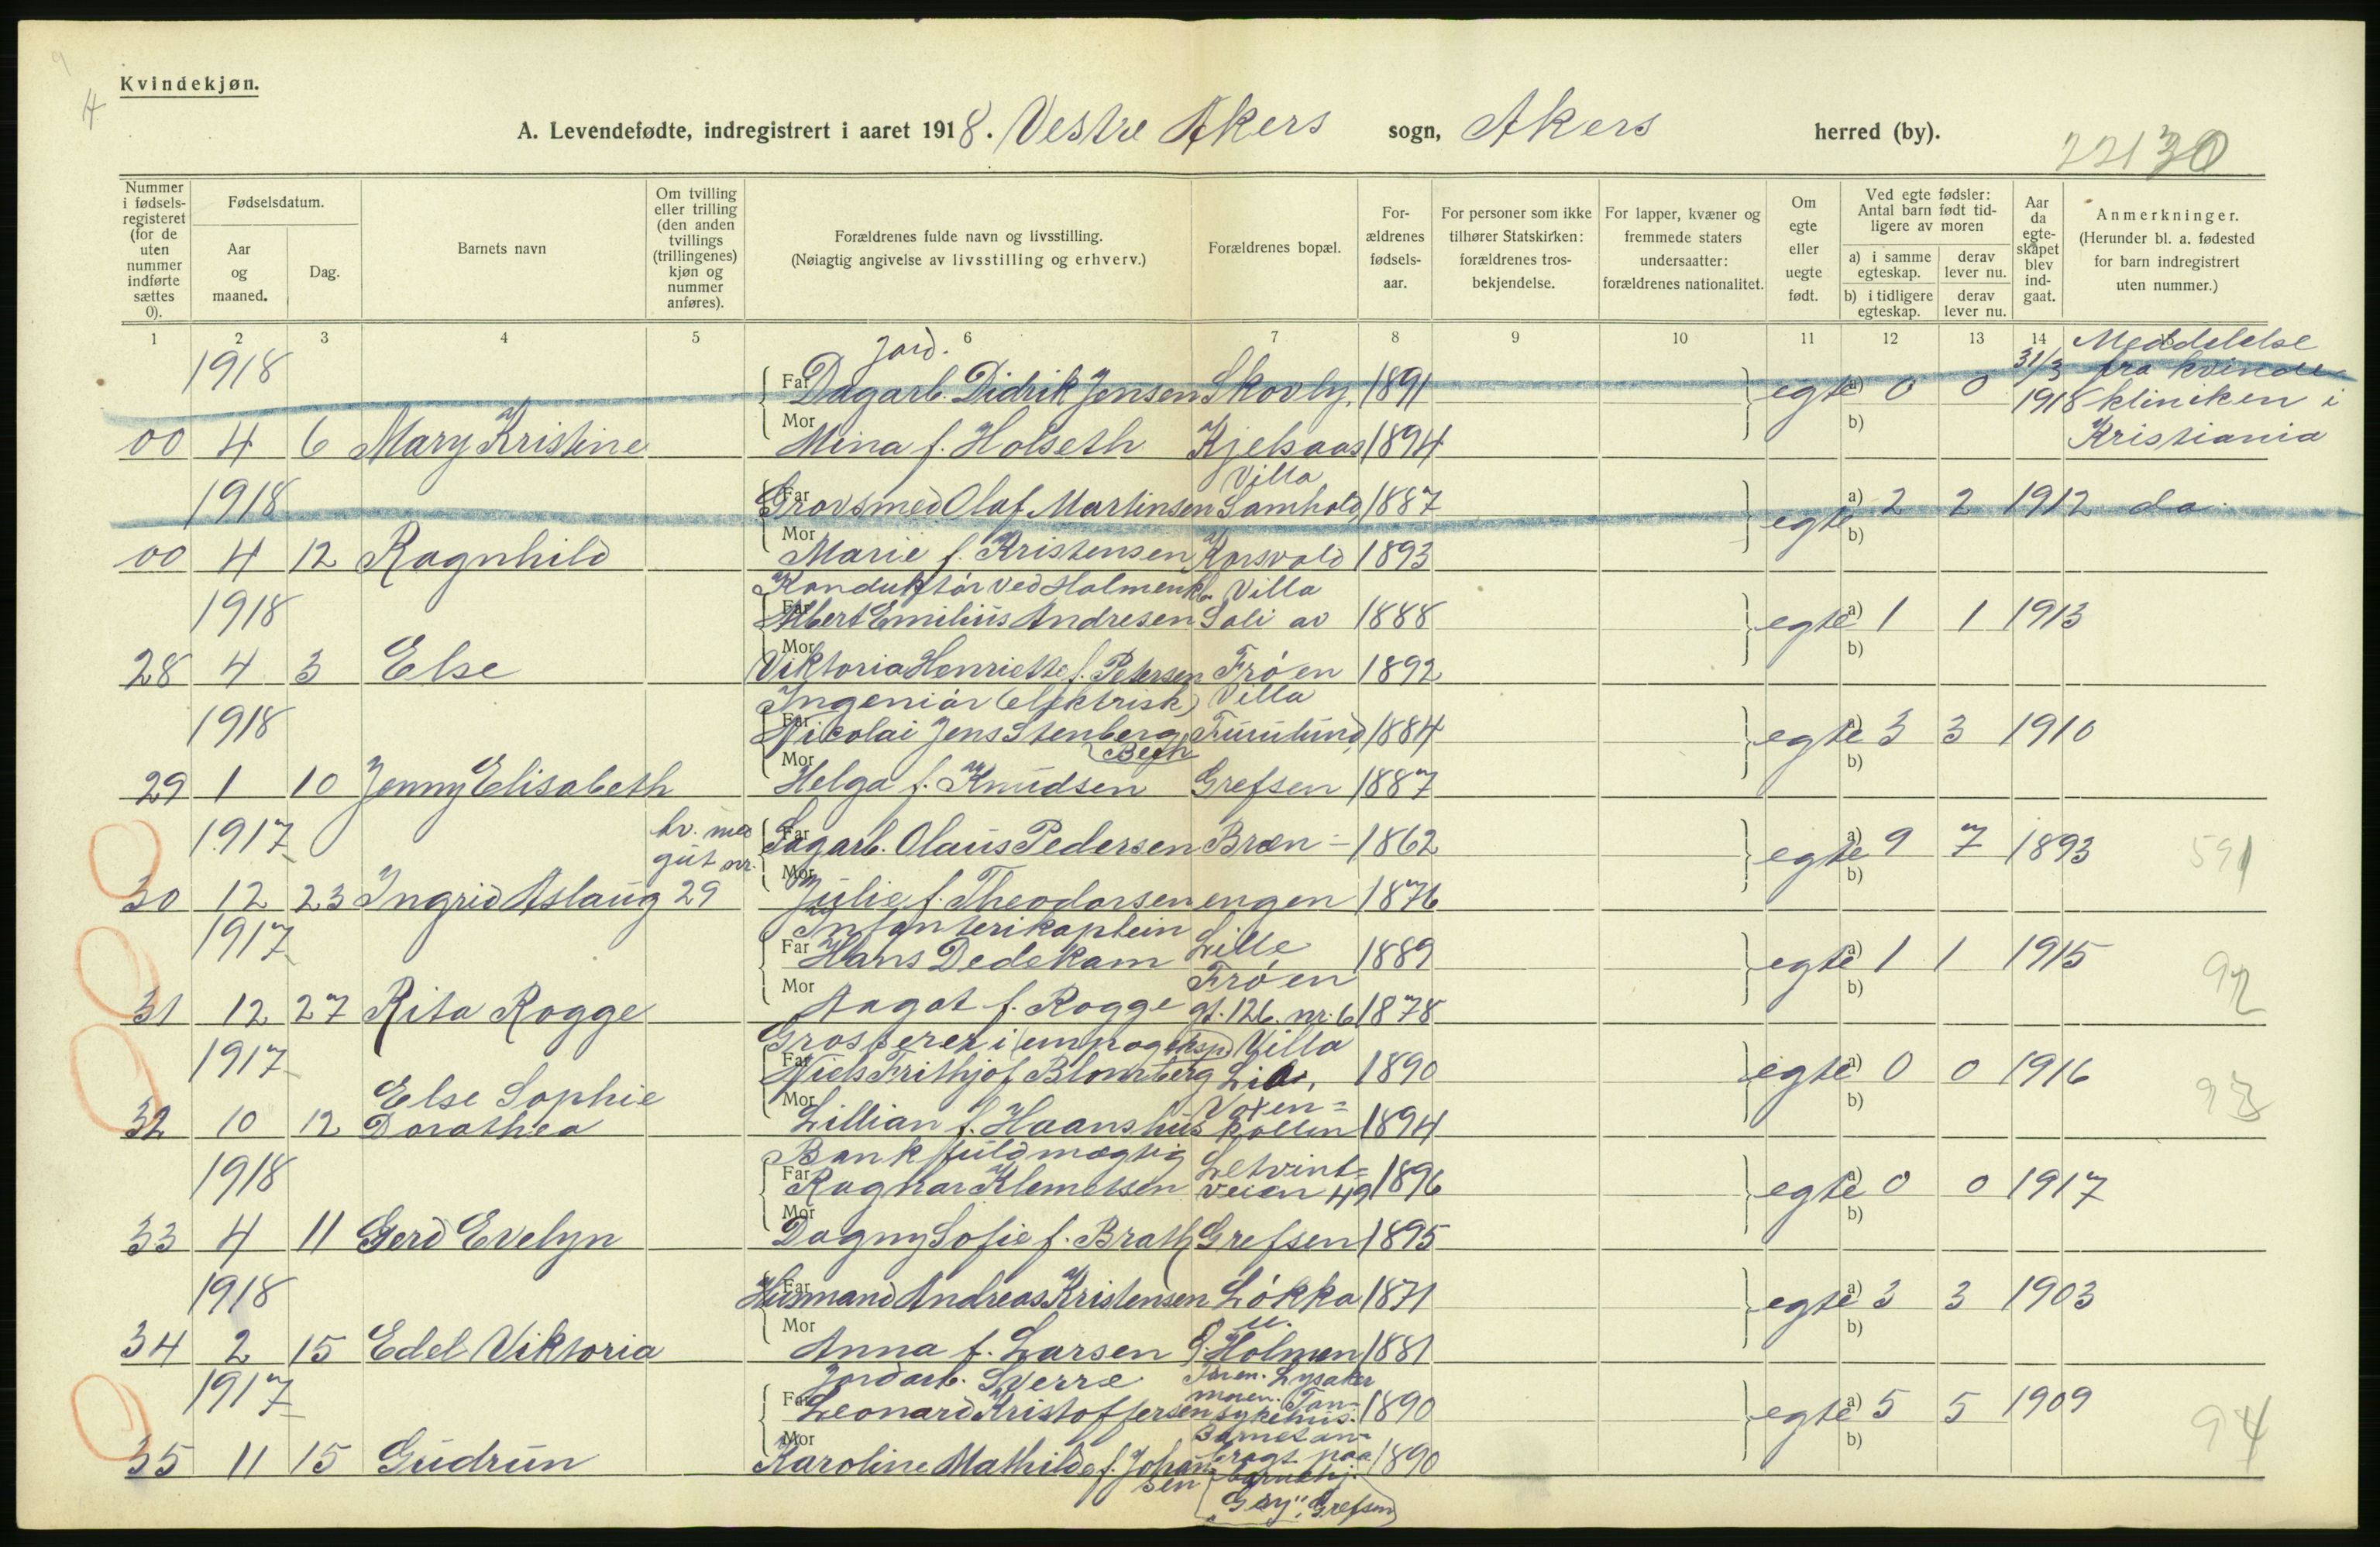 Kvindekjøn.
A. Levendefødte, indregistrert i aaret 1918. Vestre Akers sogn, Akers herred (by).
22130
Nummer i fødsels-registeret (for de uten nummer indførte sættes 0).
Fødselsdatum.
Aar og maaned.
Dag.
Barnets navn
Om tvilling eller trilling (den anden tvillings (trillingenes) kjøn og nummer anføres).
Forældrenes fulde navn og livsstilling. (Nøiagtig angivelse av livsstilling og erhverv.)
Forældrenes bopæl.
For-ældrenes fødsels-aar.
For personer som ikke tilhører Statskirken: forældrenes tros-bekjendelse.
For lapper, kvæner og fremmede staters undersaatter: forældrenes nationalitet.
Om egte eller uegte født.
Ved egte fødsler: Antal barn født tid-ligere av moren
a) i samme egteskap. derav lever nu.
b) i tidligere egteskap. derav lever nu.
Aar da egte-skapet blev ind-gaat.
Anmerkninger. (Herunder bl. a. fødested for barn indregistrert uten nummer.)
1 2 3 4 5 6 7 8 9 10 11 12 13 14
1918 Jord. Meddelelse
Far Dagarb. Didrik Jensen Skovly, 1891 egte a) 0 0 31/3 1918 fra kvinde-
b) kliniken i
00 4 6 Mary Kristine Mor Mina f. Holseth Kjelsaas 1894 Kristiania
1918 Villa
Far Grovsmed Olaf Martinsen Samhold, 1887 egte a) 2 2 1912 do.
00 4 12 Ragnhild Mor Marie f. Kristensen Korsvold 1893 b)
Konduktør ved Holmenkb. Villa
1918 Far Albert Emilius Andresen Soli av 1888 egte a) 1 1 1913
28 4 3 Else Mor Viktoria Henriette f. Petersen Frøen 1892 b)
Ingeniør (elektrisk) Villa
1918 Far Nicolai Jens Stenberg Bech Furulund, 1884 egte a) 3 3 1910
29 1 10 Jenny Elisabeth Mor Helga f. Knudsen Grefsen 1887 b)
1917 tv. med gut nr. Far Sagarb. Olaus Pedersen Bræn- 1862 egte a) 9 7 1893 591
30 12 23 Ingrid Aslaug 29 Mor Julie f. Theodorsen engen 1876 b)
Infanterikaptein
1917 Far Hans Dedekam Lille Frøen 1889 egte a) 1 1 1915 92
31 12 27 Rita Rogge Mor Aagot f. Rogge gt. 126. nr. 6 1878 b)
Grosserer i (em nog eksp) Villa
1917 Far Niels Frithjof Blomberg Lia, 1890 egte a) 0 0 1916 93
Else Sophie Voxen=
32 10 12 Dorathea Mor Lillian f. Haanshus kollen 1894 b)
Bankfuldmægtig
1918 Far Ragnar Klemetsen veien 49 1896 egte a) 0 0 1917
33 4 11 Gerd Evelyn Mor Dagny Sofie f. Brath Grefsen 1895 b)
1918 Far Husmand Andreas Kristensen Løkka 1871 egte a) 3 3 1903
u.
34 2 15 Edel Viktoria Mor Anna f. Larsen Ø. Holmen 1881 b)
Jordarb. Sverre Faren. Lysaker
1917 Far Leonard Kristoffersen moren. Tøn- sykehus. 1890 egte a) 5 5 1909 94
Barnet an-
35 11 15 Gudrun Mor Karoline Mathilde f. Johan- sen bragt paa 1890 b)
barnehj.
Grefsen